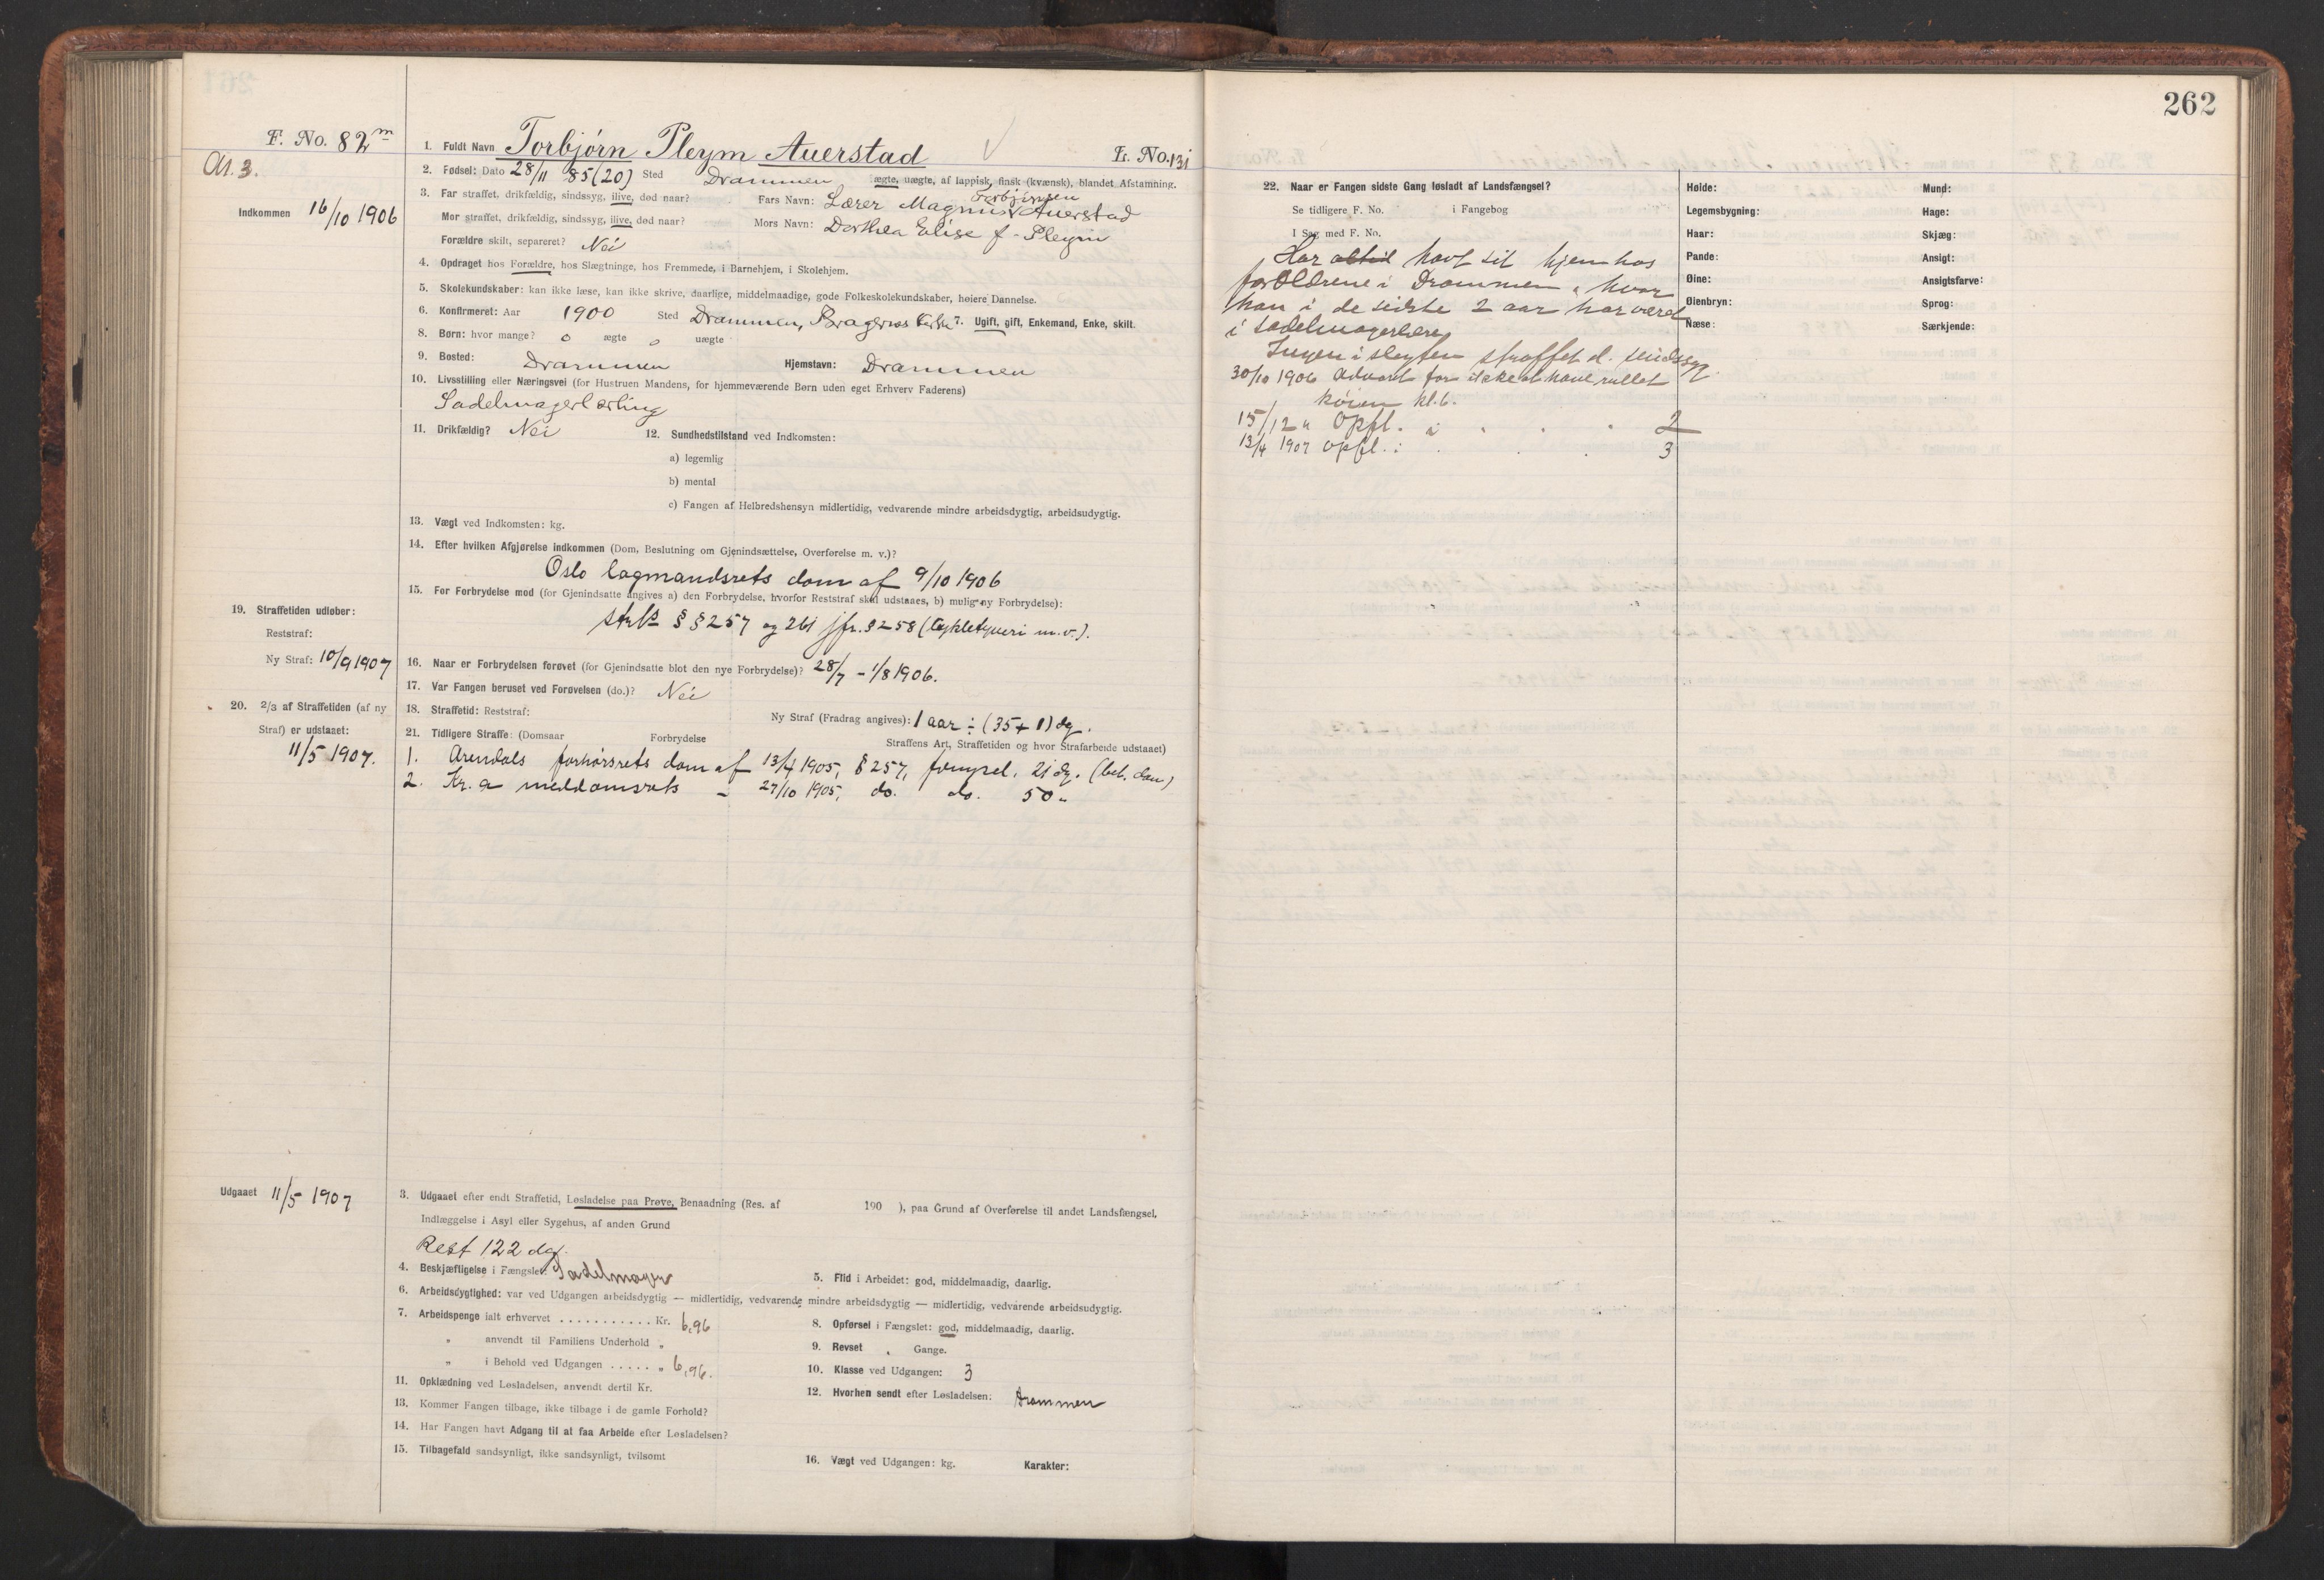 262
F. No. 82 m
Ar. 3.
Indkommen 16/10 1906
1. Fuldt Navn Torbjørn Pleym Auerstad L. No. 131
2. Fødsel: Dato 28/11 85 (20) Sted Drammen ægte, uægte, af lappisk, finsk (kvænsk), blandet Afstamning.
3. Far straffet, drikfældig, sindssyg, ilive, død naar? Fars Navn: Lærer Magnus Torbjørnsen Auerstad
Mor straffet, drikfældig, sindssyg, ilive, død naar? Mors Navn: Dorthea Elise f. Pleym
Forældre skilt, separeret? Nei
4. Opdraget hos Forældre, hos Slægtninge, hos Fremmede, i Barnehjem, i Skolehjem.
5. Skolekundskaber: kan ikke læse, kan ikke skrive, daarlige, middelmaadige, gode Folkeskolekundskaber, høiere Dannelse.
6. Konfirmeret: Aar 1900 Sted Drammen, Bragernes kirke 7. Ugift, gift, Enkemand, Enke, skilt.
8. Børn: hvor mange? 0 ægte 0 uægte
9. Bosted: Drammen Hjemstavn: Drammen
10. Livsstilling eller Næringsvei (for Hustruen Mandens, for hjemmeværende Børn uden eget Erhverv Faderens)
Sadelmagerlærling
11. Drikfældig? Nei 12. Sundhedstilstand ved Indkomsten:
a) legemlig
b) mental
c) Fangen af Helbredshensyn midlertidig, vedvarende mindre arbeidsdygtig, arbeidsudygtig.
13. Vægt ved Indkomsten: kg.
14. Efter hvilken Afgjørelse indkommen (Dom, Beslutning om Gjenindsættelse, Overførelse m. v.)?
Oslo lagmandsrets dom af 9/10 1906
15. For Forbrydelse mod (for Gjenindsatte angives a) den Forbrydelse, hvorfor Reststraf skal udstaaes, b) mulig ny Forbrydelse):
strl's §§ 257 og 261 jfr. § 258 (Cykletyveri m.v.).
19. Straffetiden udløber:
Reststraf:
Ny Straf: 10/9 1907
16. Naar er Forbrydelsen forøvet (for Gjenindsatte blot den nye Forbrydelse)? 28/7 - 1/8 1906.
17. Var Fangen beruset ved Forøvelsen (do.)? Nei
20. 2/3 af Straffetiden (af ny
Straf) er udstaaet:
11/5 1907.
18. Straffetid: Reststraf: Ny Straf (Fradrag angives): 1 aar ÷ (35 + 1) dg.
21. Tidligere Straffe: (Domsaar Forbrydelse Straffens Art, Straffetiden og hvor Strafarbeide udstaaet)
1. Arendals forhørsrets dom af 13/4 1905, § 257, fængsel, 21 dg. (bet. dom)
2. Kr.a meddomsrets - 27/10 1905, do. do. 50 "
Udgaaet 11/5 1907
3. Udgaaet efter endt Straffetid, Løsladelse paa Prøve, Benaadning (Res. af 190 ), paa Grund af Overførelse til andet Landsfængsel,
Indlæggelse i Asyl eller Sygehus, af anden Grund
Rest 122 dg.
4. Beskjæftigelse i Fængslet: Sadelmager 5. Flid i Arbeidet: god, middelmaadig, daarlig.
6. Arbeidsdygtighed: var ved Udgangen arbeidsdygtig — midlertidig, vedvarende mindre arbeidsdygtig — midlertidig, vedvarende arbeidsudygtig.
7. Arbeidspenge ialt erhvervet . . . . . . . . . . . Kr. 6,96
8. Opførsel i Fængslet: god, middelmaadig, daarlig.
" anvendt til Familiens Underhold "
9. Revset " Gange.
" i Behold ved Udgangen . . . . . " 6,96.
10. Klasse ved Udgangen: 3
11. Opklædning ved Løsladelsen, anvendt dertil Kr.
12. Hvorhen sendt efter Løsladelsen: Drammen
13. Kommer Fangen tilbage, ikke tilbage i de gamle Forhold?
14. Har Fangen havt Adgang til at faa Arbeide efter Løsladelsen?
15. Tilbagefald sandsynligt, ikke sandsynligt, tvilsomt
16. Vægt ved Udgangen: kg. Karakter:
22. Naar er Fangen sidste Gang løsladt af Landsfængsel?
Se tidligere F. No. i Fangebog
I Sag med F. No.
Har altid havt sit hjem hos
forældrene i Drammen, hvor
han i de sidste 2 aar har været
i sadelmagerlære.
Ingen i slegten straffet el. sindssyg.
30/10 1906 Advaret for ikke at have rullet
køien kl. 6.
15/12 " Opfl. i . . . 2
13/4 1907 opfl. i . . . 3
Høide: Mund:
Legemsbygning: Hage:
Haar: Skjæg:
Pande: Ansigt:
Øine: Ansigtsfarve:
Øienbryn: Sprog:
Næse: Særkjende: